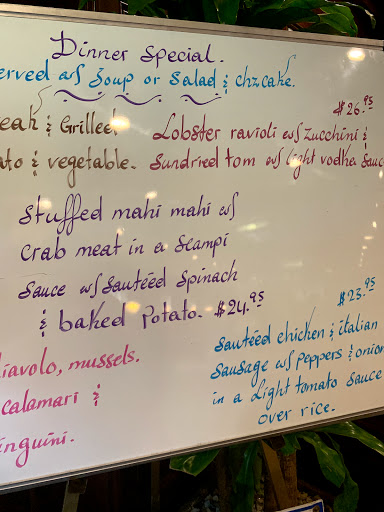 Dinner Special.
erved w/ Soup or Salad & chzcake.
$26.95
eak & Grilled
ato & vegetable.
Lobster ravioli w/ Zucchini &
Sundried tom w/ light vodka Sauc
Stuffed mahi mahi w/
crab meat in a Scampi
Sauce w/ Sautéed Spinach
& baked Potato. $24.95
$23.95
Sautéed chicken & italian
Sausage w/ Peppers & onion
in a Light tomato Sauce
over rice.
iavolo, mussels.
calamari &
inguini.